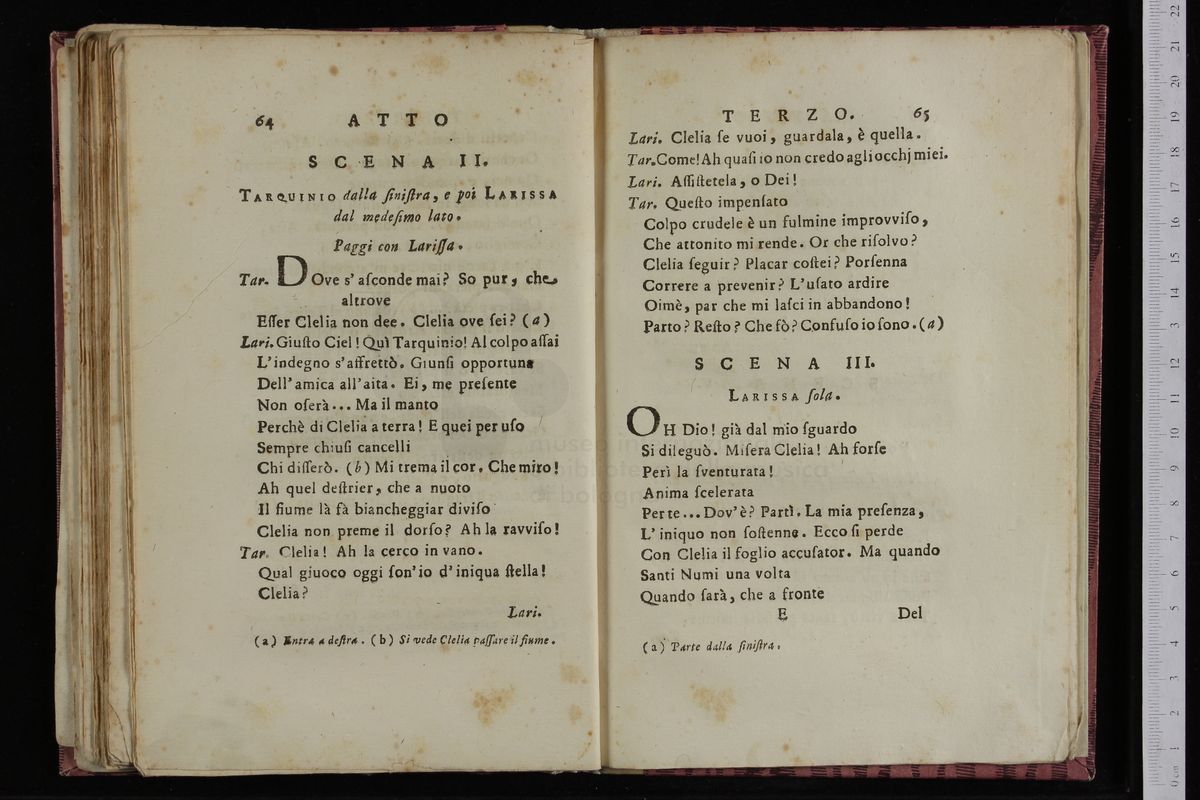 64 ATTO
SCENA II.
TARQUINIO dalla ſiniſtra, e poi LARISSA
dal medeſimo lato.
Paggi con Lariſſa.
Tar. DOve s' aſconde mai? So pur, che
altrove
Eſſer Clelia non dee. Clelia ove ſei? (a)
Lari. Giuſto Ciel! Quì Tarquinio! Al colpo aſſai
L'indegno s'affrettò. Giunſi opportuna
Dell'amica all'aita. Ei, me preſente
Non oſerà... Ma il manto
Perchè di Clelia a terra! E quei per uſo
Sempre chiuſi cancelli
Chi diſſerò. (b) Mi trema il cor. Che miro!
Ah quel deſtrier, che a nuoto
Il fiume là fà biancheggiar diviſo
Clelia non preme il dorſo? Ah la ravviſo!
Tar. Clelia! Ah la cerco in vano.
Qual giuoco oggi ſon'io d'iniqua ſtella!
Clelia?
Lari.
(a) Entra a deſtra. (b) Si vede Clelia paſſare il fiume.
TERZO. 65
Lari. Clelia ſe vuoi, guardala, è quella.
Tar. Come! Ah quaſi io non credo agli occhj miei.
Lari. Aſſiſtetela, o Dei!
Tar. Queſto impenſato
Colpo crudele è un fulmine improvviſo,
Che attonito mi rende. Or che riſolvo?
Clelia ſeguir? Placar coſtei? Porſenna
Correre a prevenir? L'uſato ardire
Oimè, par che mi laſci in abbandono!
Parto? Reſto? Che fò? Confuſo io ſono. (a)
SCENA III.
LARISSA ſola.
OH Dio! già dal mio ſguardo
Si dileguò. Miſera Clelia! Ah forſe
Perì la ſventurata!
Anima ſcelerata
Per te... Dov'è? Partì. La mia preſenza,
L' iniquo non ſoſtenne. Ecco ſi perde
Con Clelia il foglio accuſator. Ma quando
Santi Numi una volta
Quando ſarà, che a fronte
E Del
(a) Parte dalla ſiniſtra.